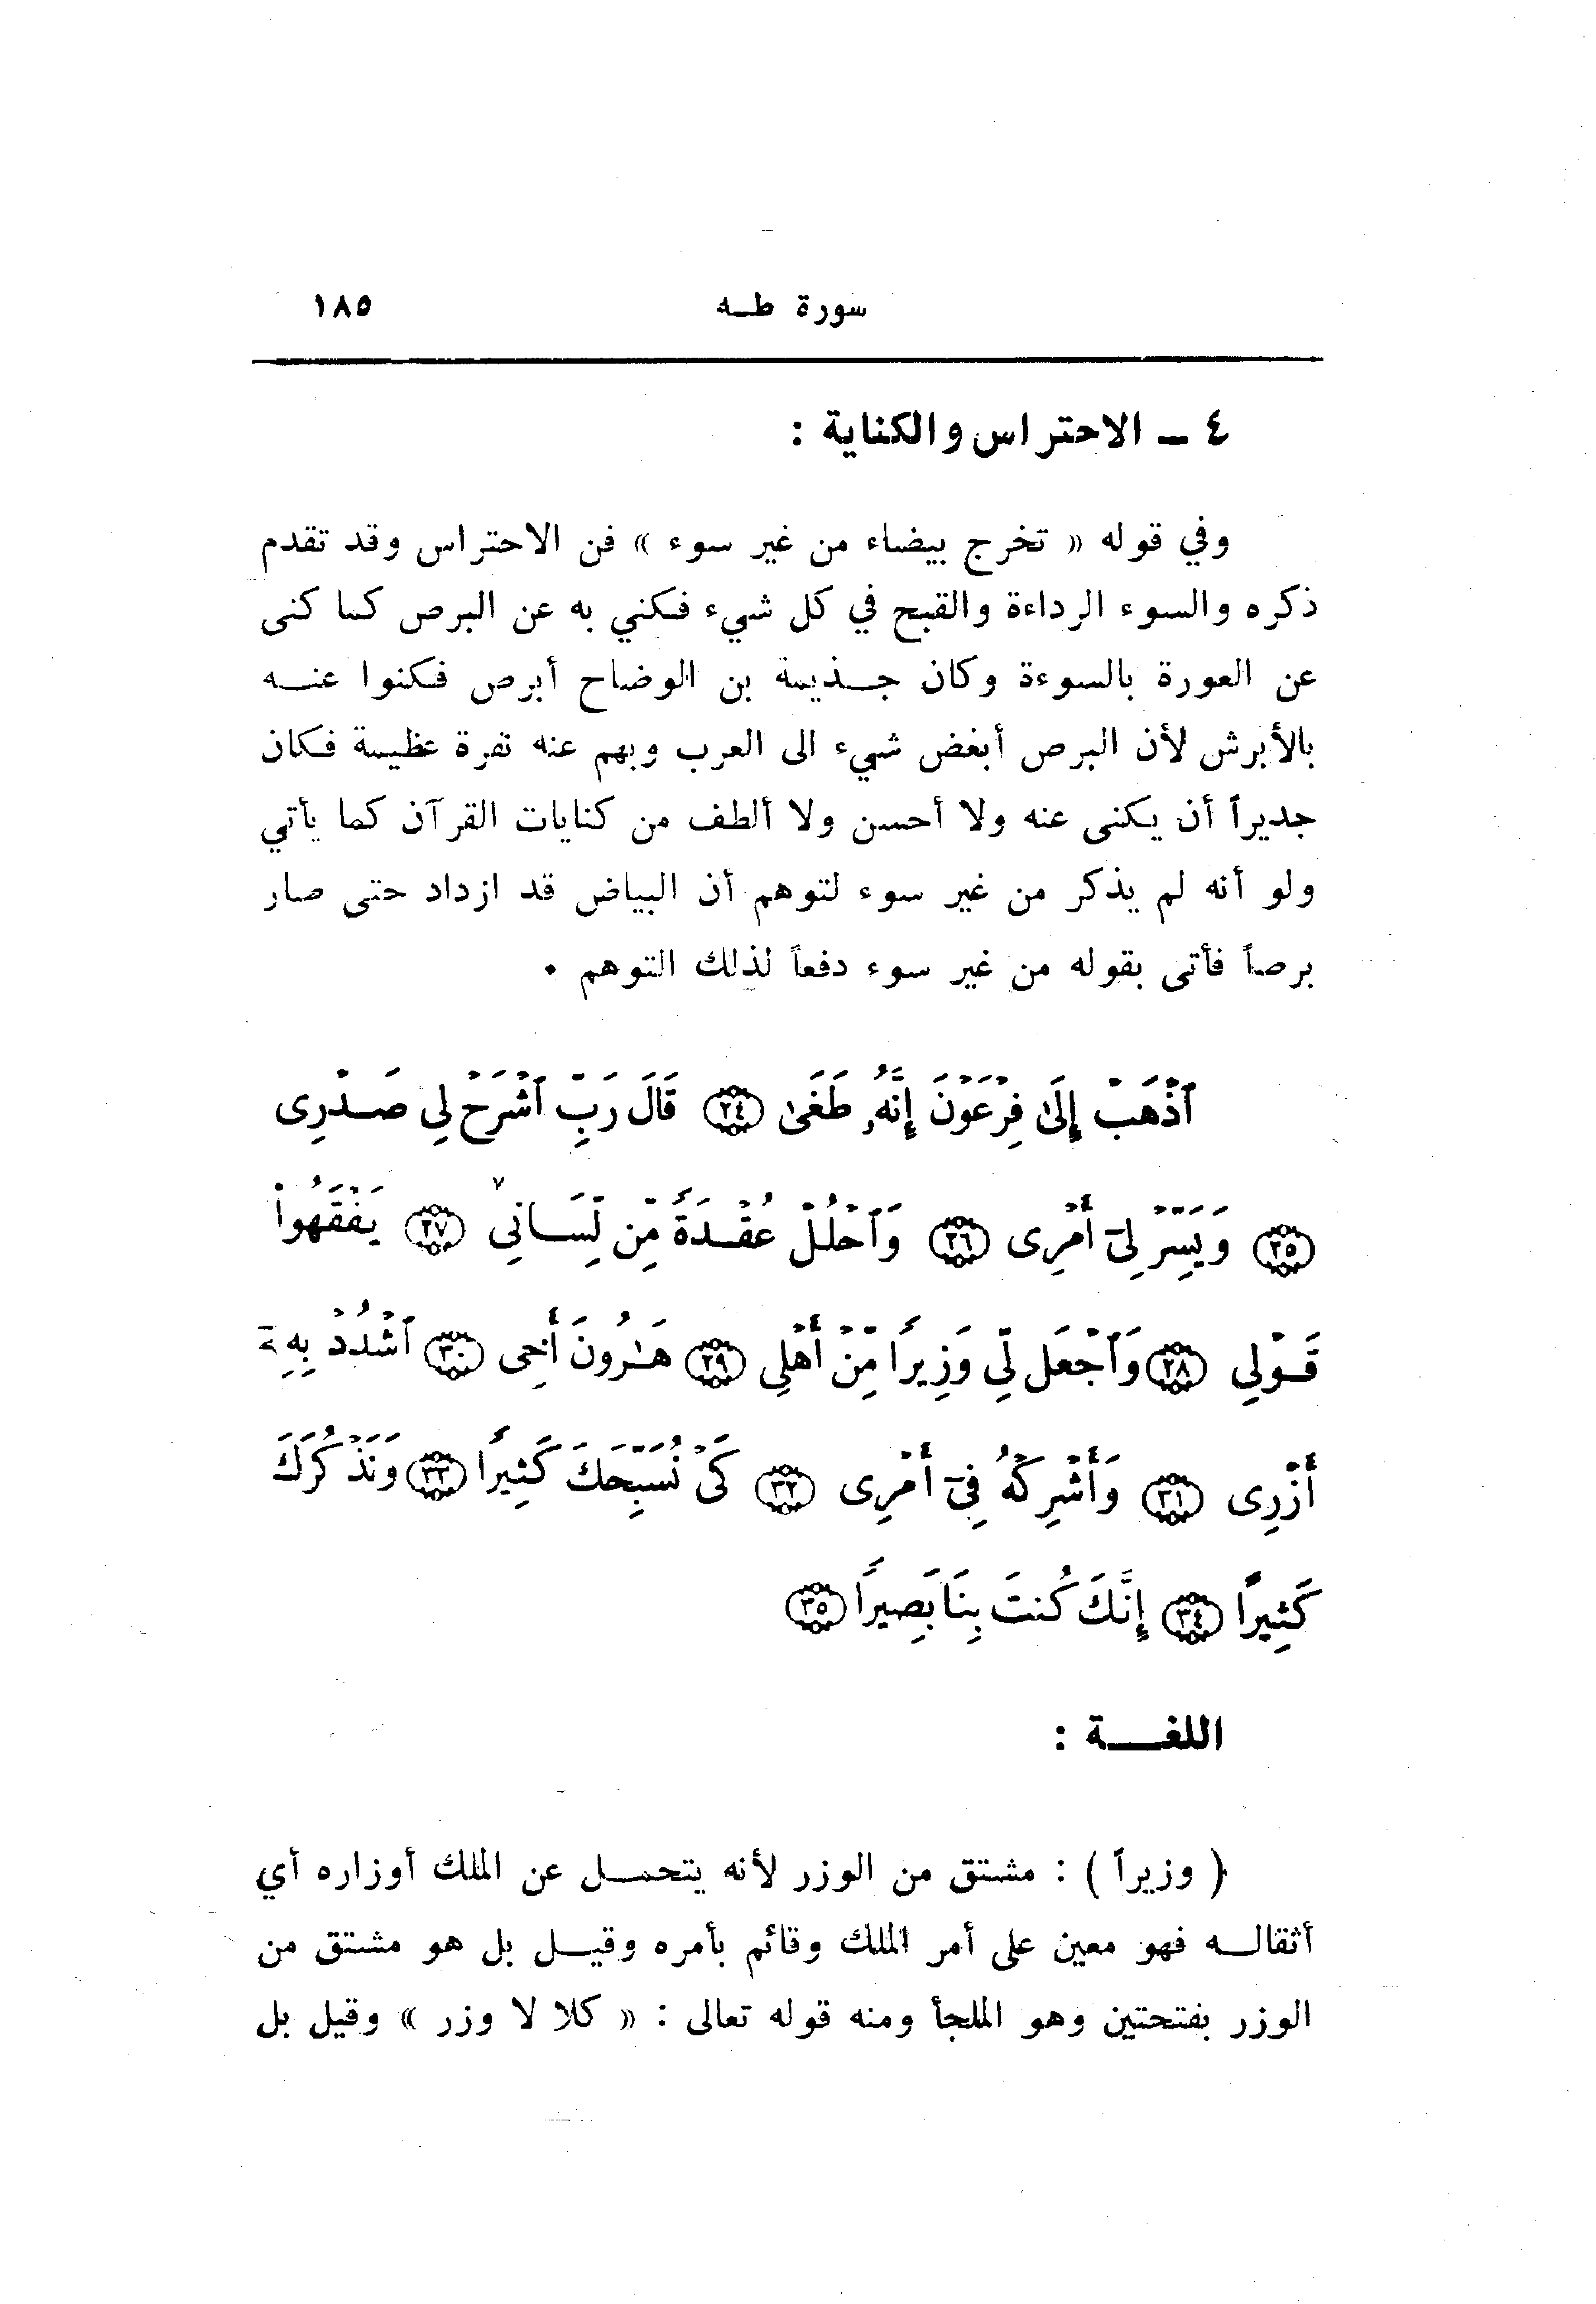 سورة طـه ١٨٥
٤ ـ الاحتراس والكناية :
وفي قوله « تخرج بيضاء من غير سوء » فن الاحتراس وقد تقدم
ذكره والسوء الرداءة والقبح في كل شيء فكني به عن البرص كما كنى
عن العورة بالسوءة وكان جـذيمة بن الوضاح أبرص فكنوا عنـه
بالأبرش لأن البرص أبغض شيء الى العرب وبهم عنه نفرة عظيمة فكان
جديراً أن يكنى عنه ولا أحسن ولا ألطف من كنايات القرآن كما يأتي
ولو أنه لم يذكر من غير سوء لتوهم أن البياض قد ازداد حتى صار
برصاً فأتى بقوله من غير سوء دفعاً لذلك التوهم ٠
ٱذْهَبْ إِلَىٰ فِرْعَوْنَ إِنَّهُۥ طَغَىٰ ٢٤ قَالَ رَبِّ ٱشْرَحْ لِى صَـدْرِى
٢٥ وَيَسِّرْ لِىٓ أَمْرِى ٢٦ وَٱحْلُلْ عُقْـدَةً مِّن لِّسَـانِى ٢٧ يَفْقَهُوا۟
قَـوْلِى ٢٨ وَٱجْعَل لِّى وَزِيرًا مِّنْ أَهْلِى ٢٩ هَـٰرُونَ أَخِى ٣٠ ٱشْدُدْ بِهِۦٓ
أَزْرِى ٣١ وَأَشْرِكْهُ فِىٓ أَمْرِى ٣٢ كَىْ نُسَبِّحَكَ كَثِيرًا ٣٣ وَنَذْكُرَكَ
كَثِيرًا ٣٤ إِنَّكَ كُنتَ بِنَا بَصِيرًا ٣٥
اللغـــة :
( وزيراً ) : مشتق من الوزر لأنه يتحمـل عن الملك أوزاره أي
أثقالـه فهو معين على أمر الملك وقائم بأمره وقيـل بل هو مشتق من
الوزر بفتحتين وهو الملجأ ومنه قوله تعالى : « كلا لا وزر » وقيل بل